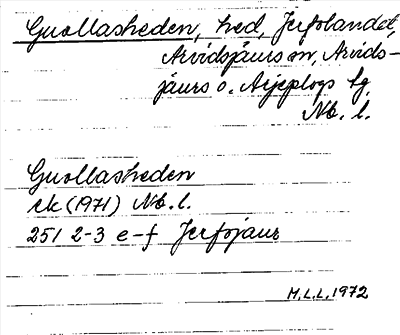 Guollasheden, hed, Jerfolandet,
Arvidsjaurs sn, Arvids-
jaurs o. Arjeplogs tg
Nb. l.
Guollasheden
ek (1971) Nb. l.
25I 2-3 e-f Jerfojaur
M.L.L. 1972